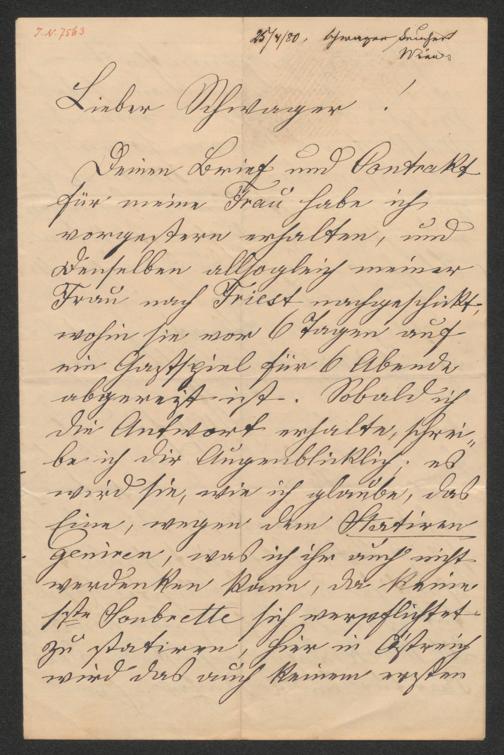 T.N. 7563
25/4/80. Schwager
Wien.
Lieber Schwager!
Deinen Brief und Contrakt
für meine Frau habe ich
vorgestern erhalten, und
denselben allsogleich meiner
Frau nach Triest nachgeschickt,
wohin sie vor 6 Tagen auf
ein Gastspiel für 6 Abende
abgereist ist. Sobald ich
die Antwort erhalte, schrei-
be ich dir Augenblicklich; es
wird sie, wie ich glaube, das
Eine, wegen dem Statiren
geniren, was ich ihr auch nicht
verdenken kann, da keine
1ste Soubrette sich verpflichtet
zu statiren, hier in Östreich
wird das auch keinem ersten